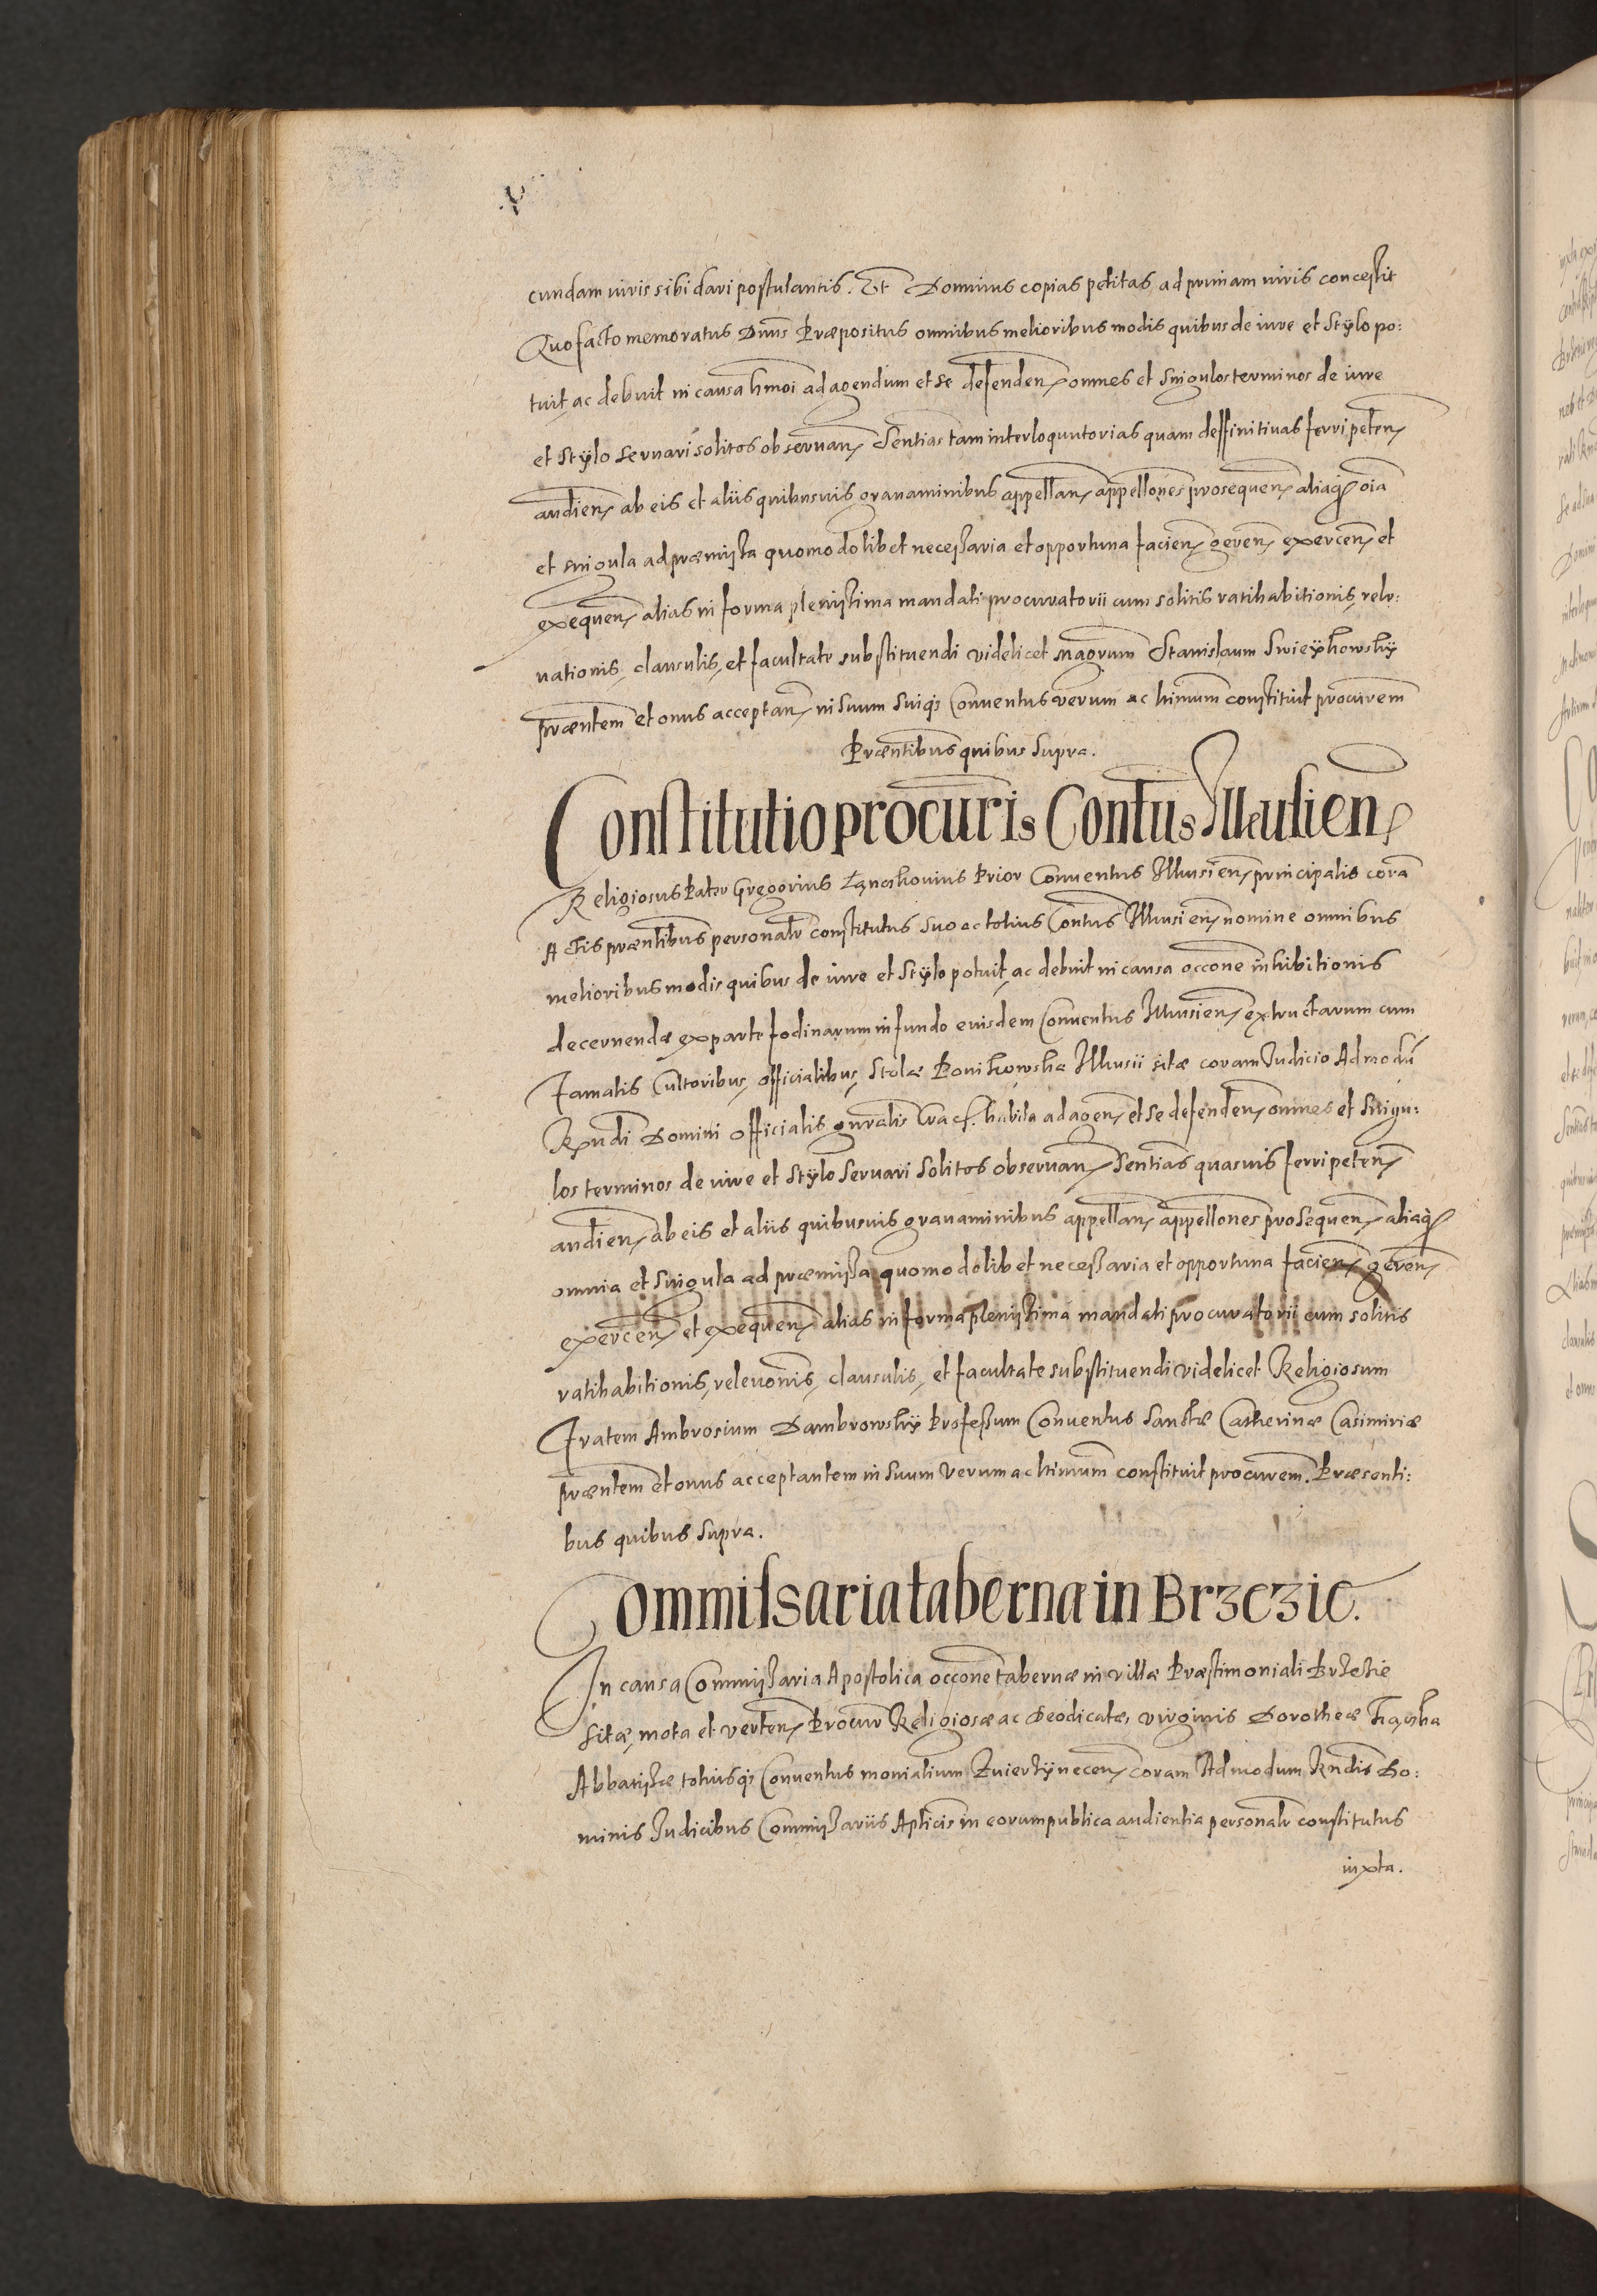 cundam iuris sibi dari postulantis. Et Dominus copias petitas ad primam iuris concessit
Quo facto memoratus Dnus Præpositus omnibus melioribus modis quibus de iure et Stÿlo po:
tuit, ac debuit in causa hmoi ad agendum et se defenden omnes et singulos terminos de iure
et Stÿlo servari solitos observan Sentias tam interloquutorias quam deffinitivas ferri peten
audien ab eis et aliis quibusvis gravaminibus appellan appellones prosequen aliaq oia
et singula ad præmissa quomodolibet necessaria et opportuna facien geren exercen et
exequen alias in forma plenissima mandati procuratorii cum solitis ratihabitionis, rele:
vationis, clausulis, et facultate substituendi videlicet magrum Stanislaum Swieÿkowskÿ
præntem et onus acceptan in suum suiq Conventus verum ac ltimum constituit procurem
Præntibus quibus supra.
Constitutio procuris Contus Illkusien
Religiosus Pater Gregorius Prior Conventus Illkusien principalis corã
Actis præntibus personalr constitutus suo ac totius Contus Illkusien nomine omnibus
melioribus modis quibus de iure et Stÿlo potuit, ac debuit in causa occone inhibitionis
decernendæ ex parte fodinarum in fundo eiusdem Conventus Illkusien extructarum cum
Famatis Cultoribus, officialibus, Stolæ Ponikowska Illkusii sitæ coram Iudicio Admodũ
Rndi Domini Officialis gnralis Cracf. habita ad agen et se defenden omnes et singu:
los terminos de iure et Stÿlo servari solitos observan Sentias quasvis ferri peten
audien ab eis et aliis quibusvis gravaminibus appellan appellones prosequen aliaq
omnia et singula ad præmissa quomodolibet necessaria et opportuna facien geren
exercen et exequen alias in forma plenissima mandati procuratorii cum solitis
ratihabitionis, relevonis, clausulis, et facultate substituendi videlicet Religiosum
Fratem Ambrosium Dambrowskÿ Professum Conventus Sanctæ Catherinæ Casimiriæ
præntem et onus acceptantem in suum verum ac ltimum constituit procurem. Præsenti:
bus quibus supra.
Commissaria taberna in Brzezie.
In causa Commissaria Apostolica occone tabernæ in villa Præstimoniali Brzezie
sitæ, mota et verten Procur Religiosæ ac Deodicatæ, virginis Dorotheæ
Abbatissæ totiusq Conventus monialium Zwierzÿnecen coram Admodum Rndis Do:
minis Iudicibus Commissariis Aplicis in eorum publica audientia personalr constitutus
iuxta.